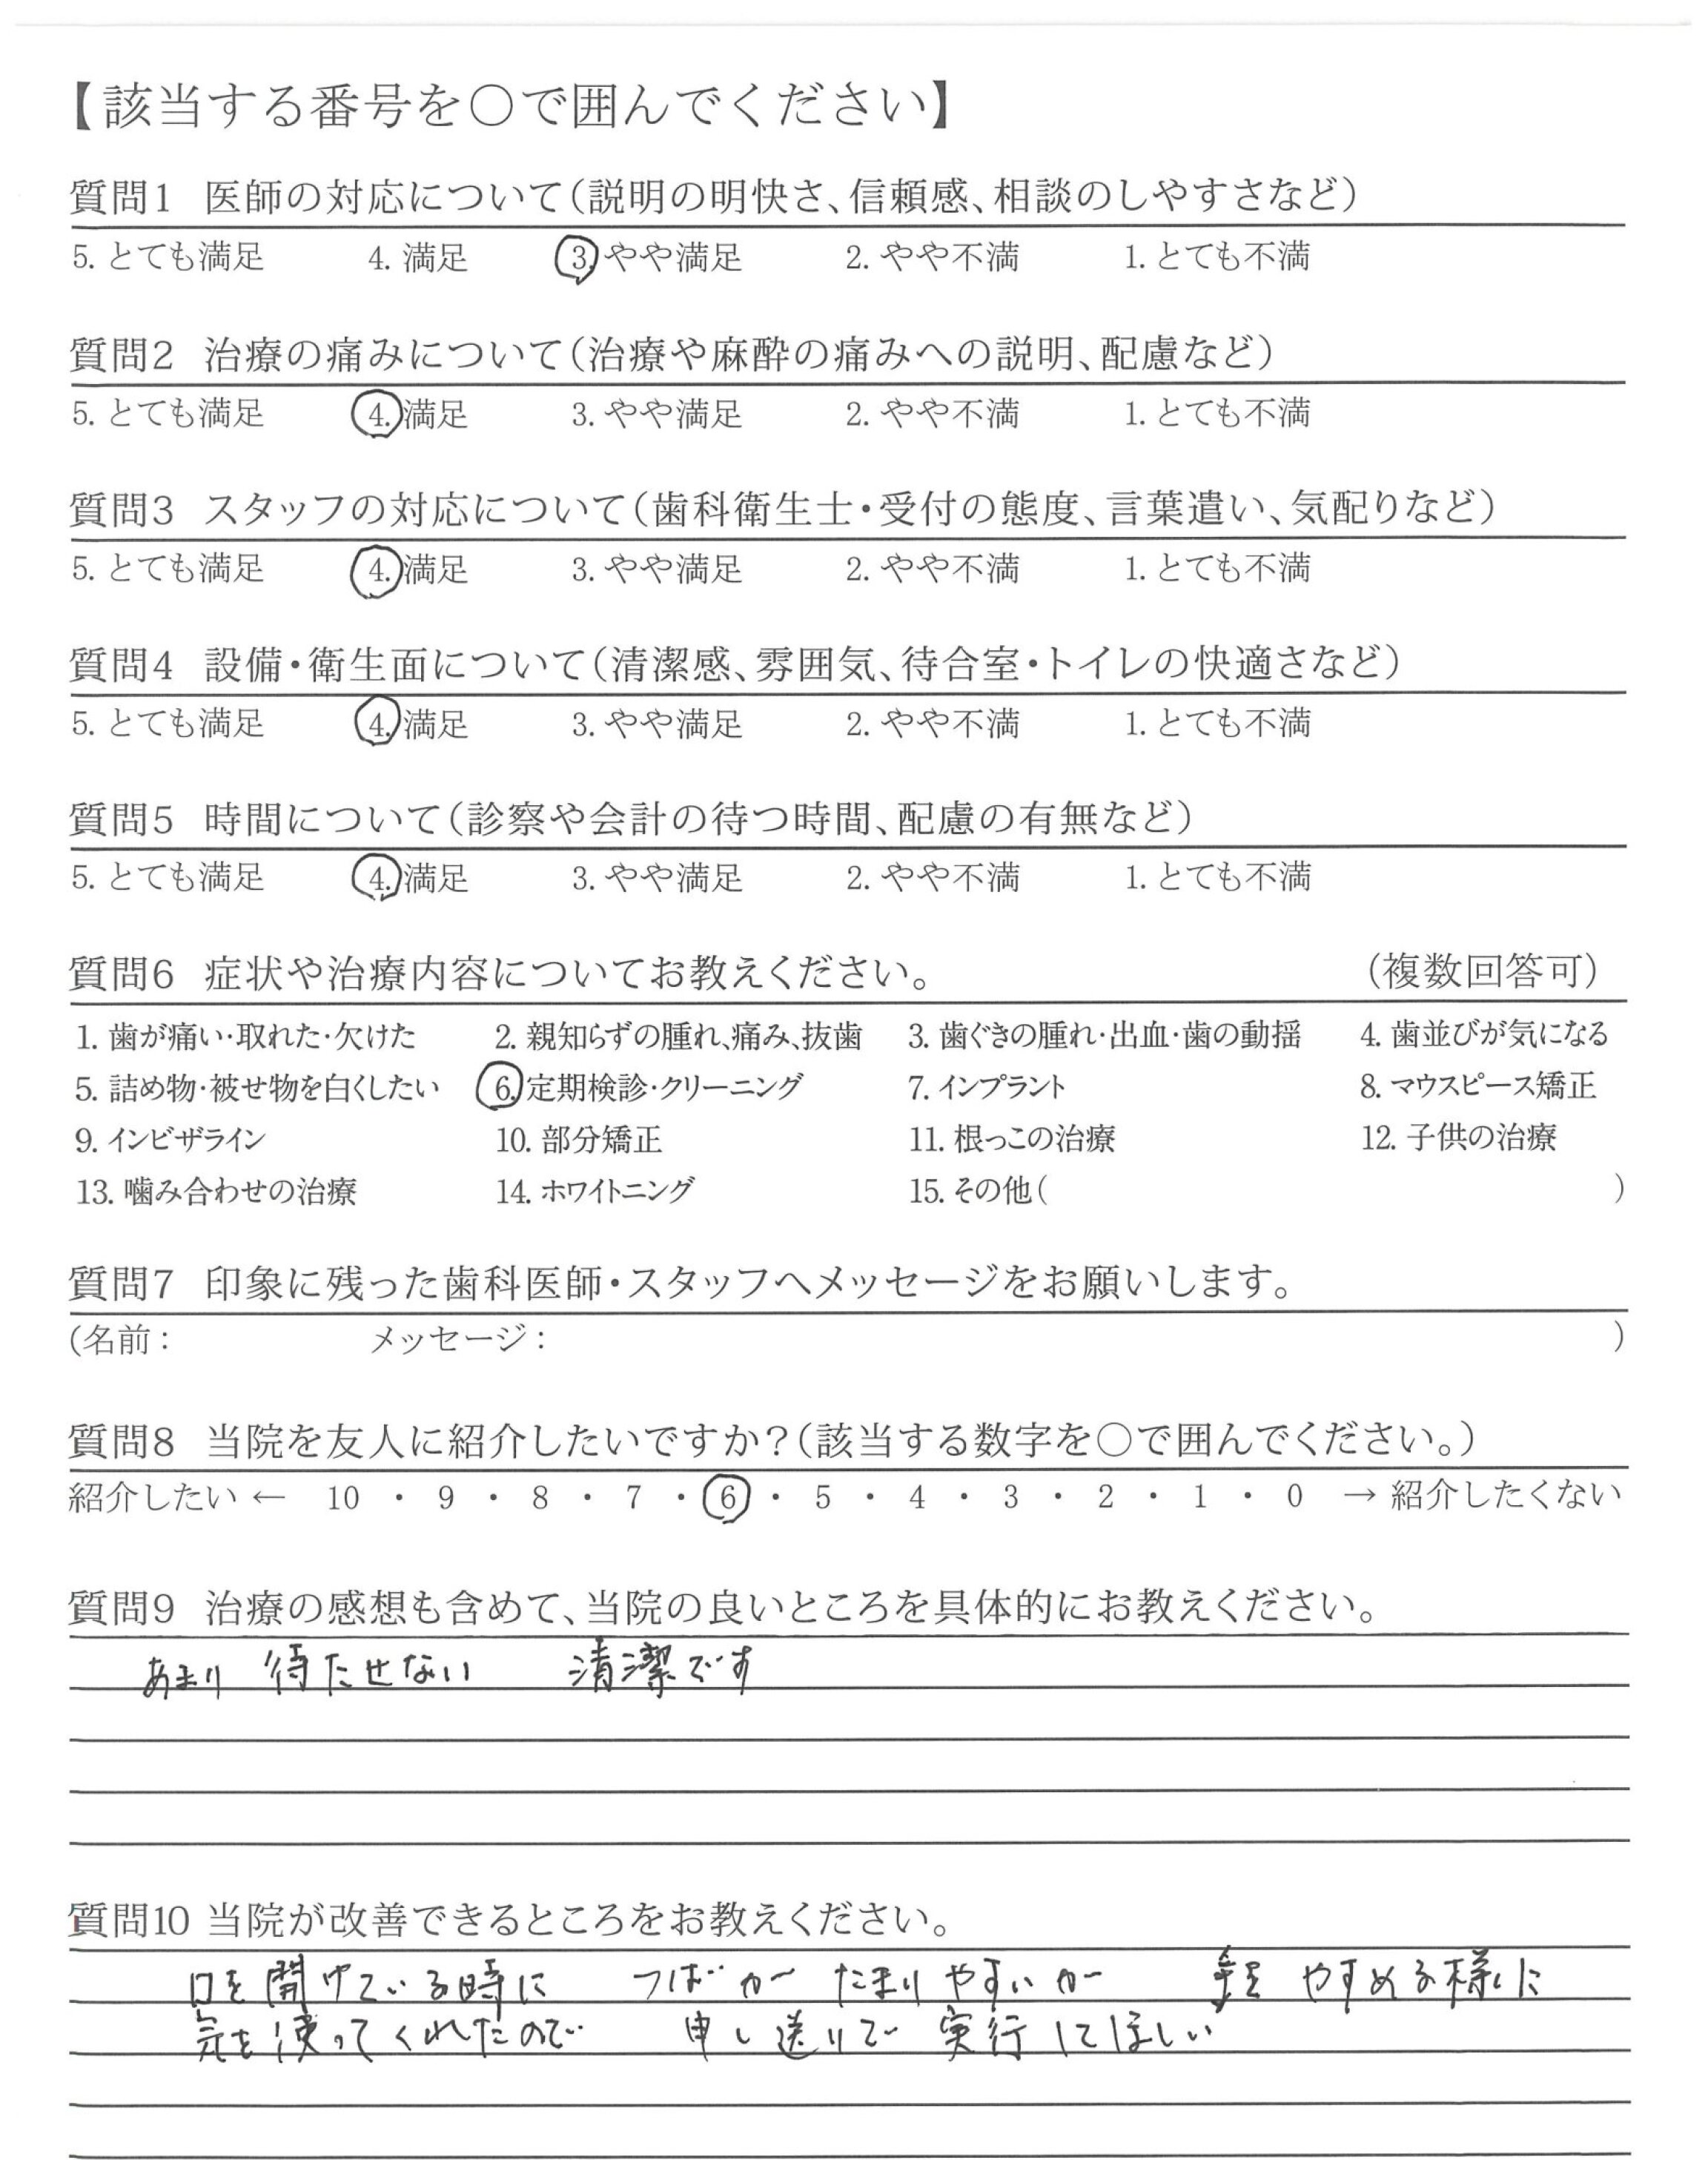 【該当する番号を○で囲んでください】
質問1 医師の対応について（説明の明快さ、信頼感、相談のしやすさなど）
5. とても満足 4. 満足 3. やや満足 2. やや不満 1. とても不満
質問2 治療の痛みについて（治療や麻酔の痛みへの説明、配慮など）
5. とても満足 4. 満足 3. やや満足 2. やや不満 1. とても不満
質問3 スタッフの対応について（歯科衛生士・受付の態度、言葉遣い、気配りなど）
5. とても満足 4. 満足 3. やや満足 2. やや不満 1. とても不満
質問4 設備・衛生面について（清潔感、雰囲気、待合室・トイレの快適さなど）
5. とても満足 4. 満足 3. やや満足 2. やや不満 1. とても不満
質問5 時間について（診察や会計の待つ時間、配慮の有無など）
5. とても満足 4. 満足 3. やや満足 2. やや不満 1. とても不満
質問6 症状や治療内容についてお教えください。 （複数回答可）
1. 歯が痛い・取れた・欠けた 2. 親知らずの腫れ、痛み、抜歯 3. 歯ぐきの腫れ・出血・歯の動揺 4. 歯並びが気になる
5. 詰め物・被せ物を白くしたい 6. 定期検診・クリーニング 7. インプラント 8. マウスピース矯正
9. インビザライン 10. 部分矯正 11. 根っこの治療 12. 子供の治療
13. 噛み合わせの治療 14. ホワイトニング 15. その他（ ）
質問7 印象に残った歯科医師・スタッフへメッセージをお願いします。
（名前： メッセージ： ）
質問8 当院を友人に紹介したいですか？（該当する数字を○で囲んでください。）
紹介したい ← 10 ・ 9 ・ 8 ・ 7 ・ 6 ・ 5 ・ 4 ・ 3 ・ 2 ・ 1 ・ 0 → 紹介したくない
質問9 治療の感想も含めて、当院の良いところを具体的にお教えください。
あまり 待たせない 清潔です
質問10 当院が改善できるところをお教えください。
口を開けている時に つばが たまりやすいが やすめる様に
気を使ってくれたので 申し送りで 実行してほしい